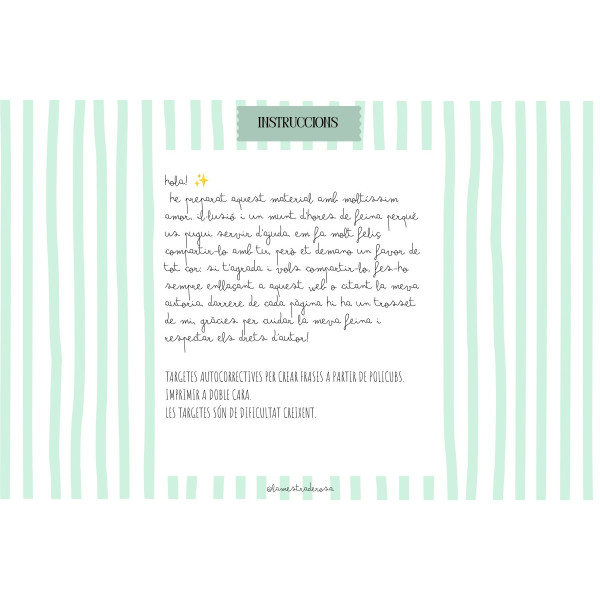 INSTRUCCIONS
hola! ✨
he preparat aquest material amb moltíssim
amor, il·lusió i un munt d'hores de feina perquè
us pugui servir d'ajuda. em fa molt feliç
compartir-lo amb tu, però et demano un favor de
tot cor: si t'agrada i vols compartir-lo, fes-ho
sempre enllaçant a aquest web o citant la meva
autoria. darrere de cada pàgina hi ha un trosset
de mi, gràcies per cuidar la meva feina i
respectar els drets d'autor!
TARGETES AUTOCORRECTIVES PER CREAR FRASES A PARTIR DE POLICUBS.
IMPRIMIR A DOBLE CARA.
LES TARGETES SÓN DE DIFICULTAT CREIXENT.
@lamestraderosa